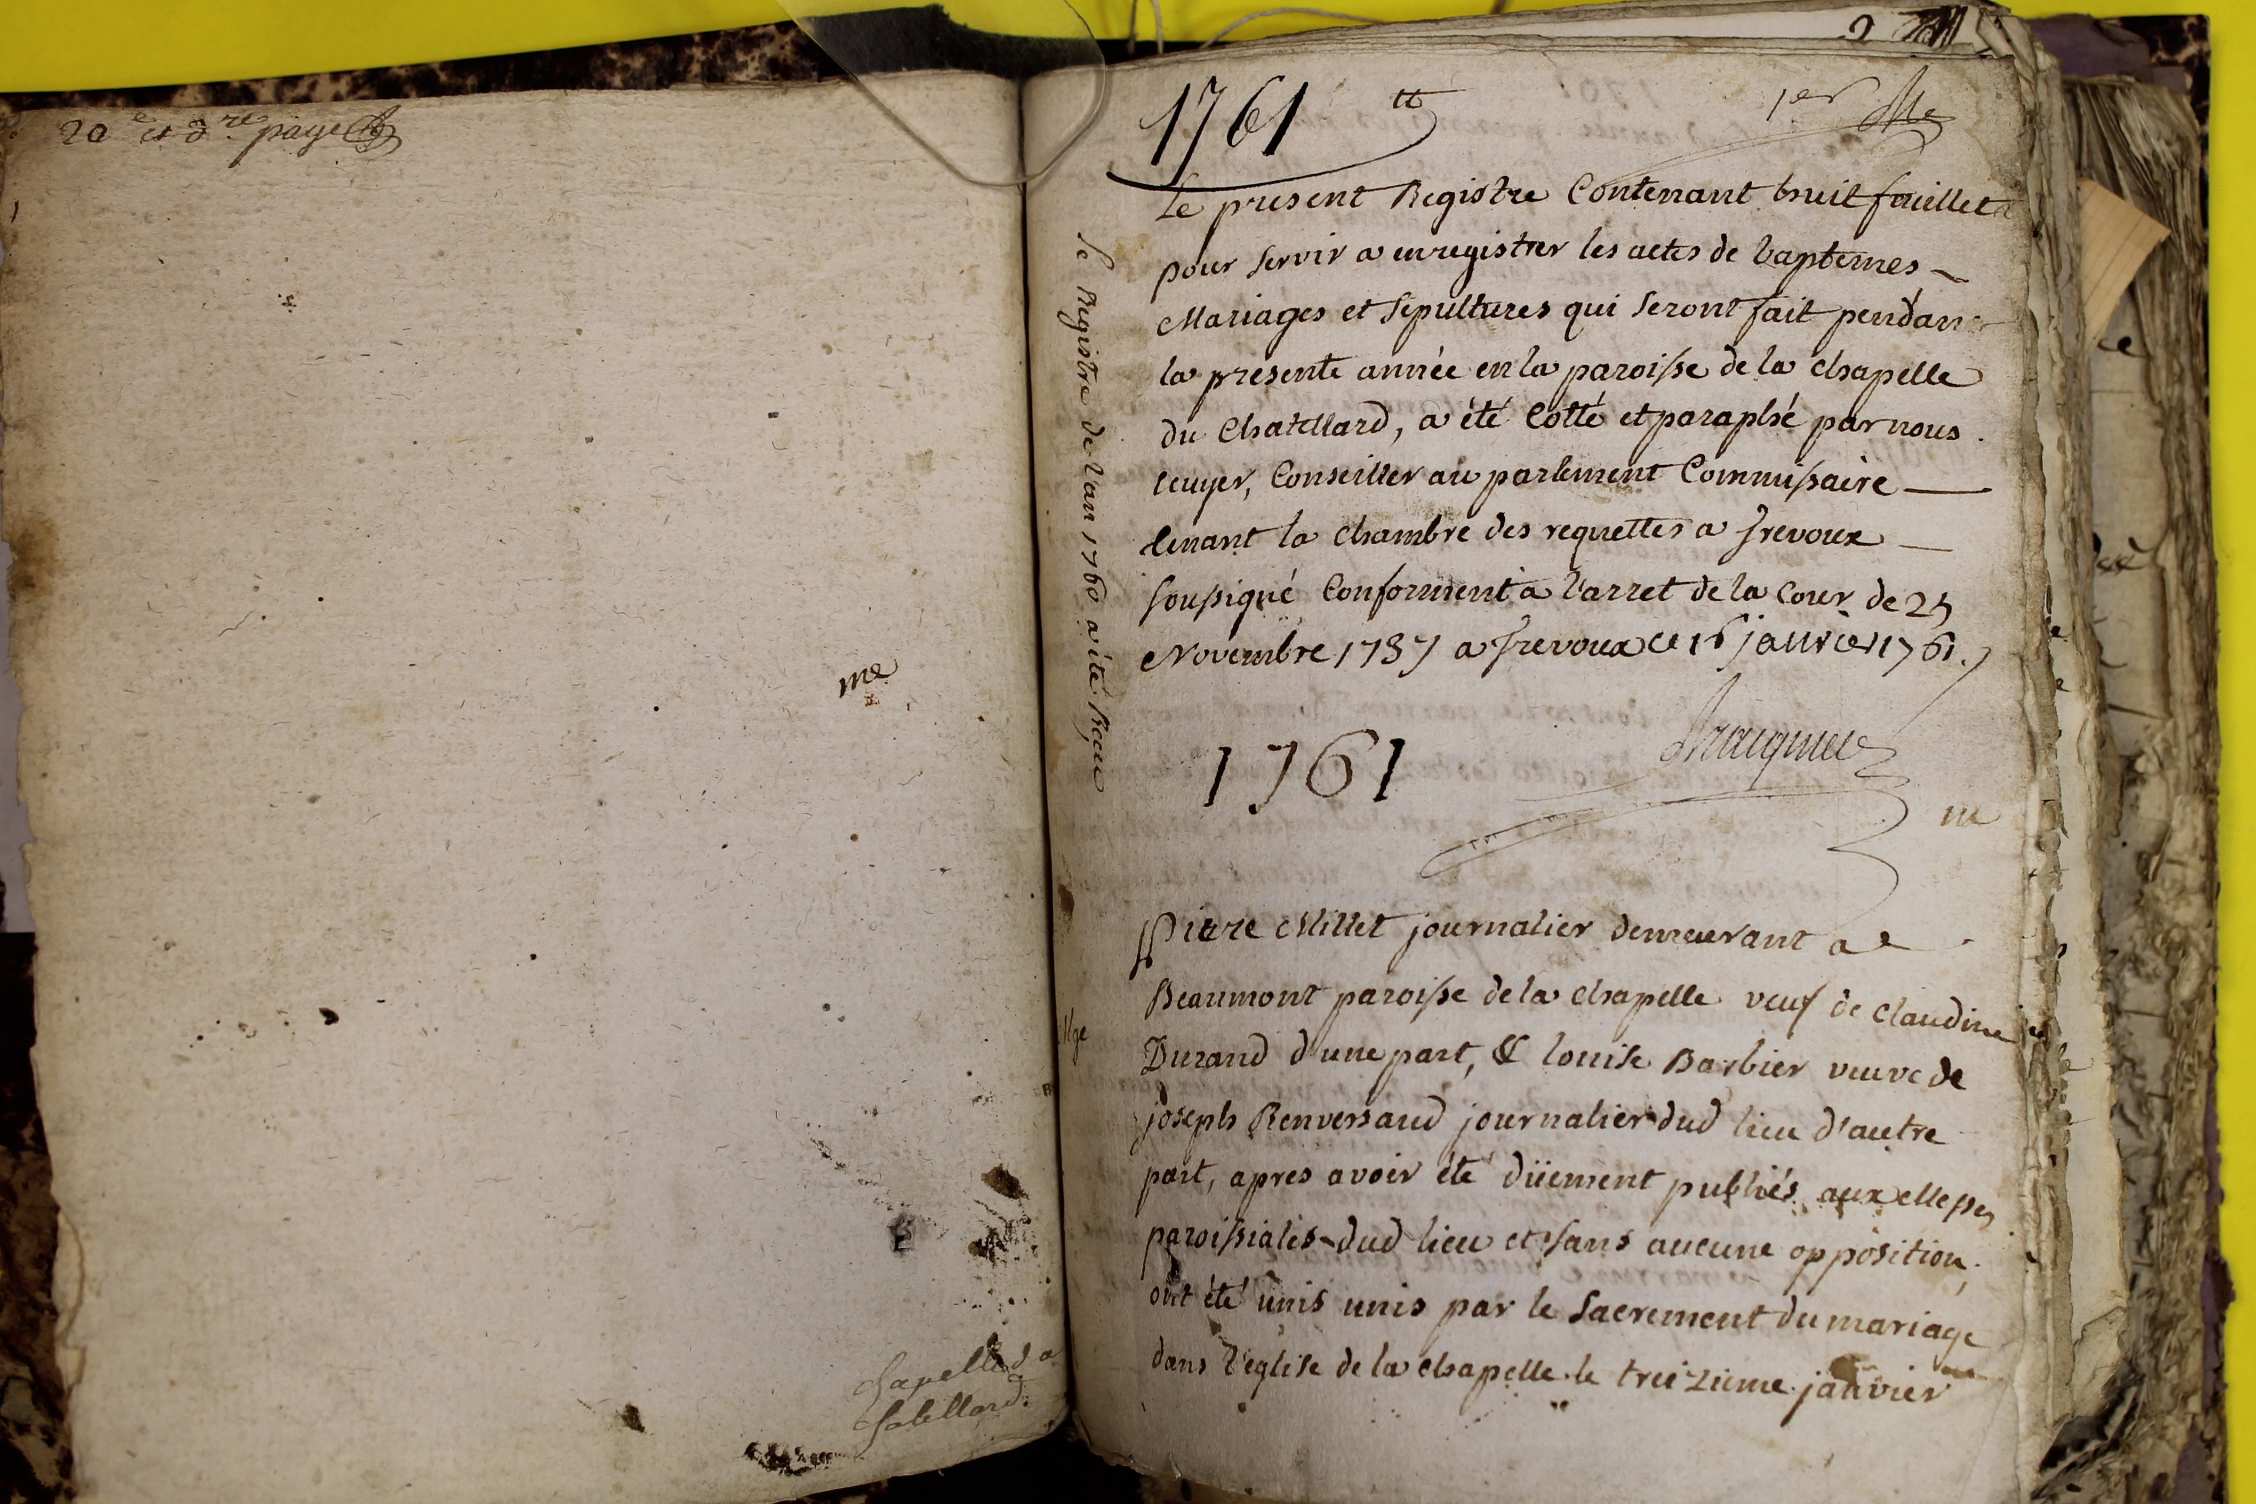 20e et dre page
me
Chapelle du
Chatellard.
1761
1er
Le present Registre Contenant huit feuillets
pour servir a enregistrer les actes de baptemes
Mariages et sepultures qui seront fait pendant
la presente année en la paroisse de la chapelle
du Chatellard, a été Cotté et paraphé par nous
Ecuyer, Conseiller au parlement Commissaire
tenant la chambre des requettes a Trevoux
soussigné Conforment a l'arret de la Cour de 25
Novembre 1737 a Trevoux ce 16 janvier 1761.
Le Registre de l'an 1760 a été Reçu
1761
Mge
Pierre Millet journalier demeurant a
Beaumont paroisse de la chapelle veuf de Claudine
Durand d'une part, & louise Barbier veuve de
joseph Renversaud journalier dud lieu d'autre
part, apres avoir été düement publiés aux messes
paroissiales dud lieu et sans aucune opposition,
ont été unis unis par le sacrement du mariage
dans l'eglise de la chapelle le treizieme janvier